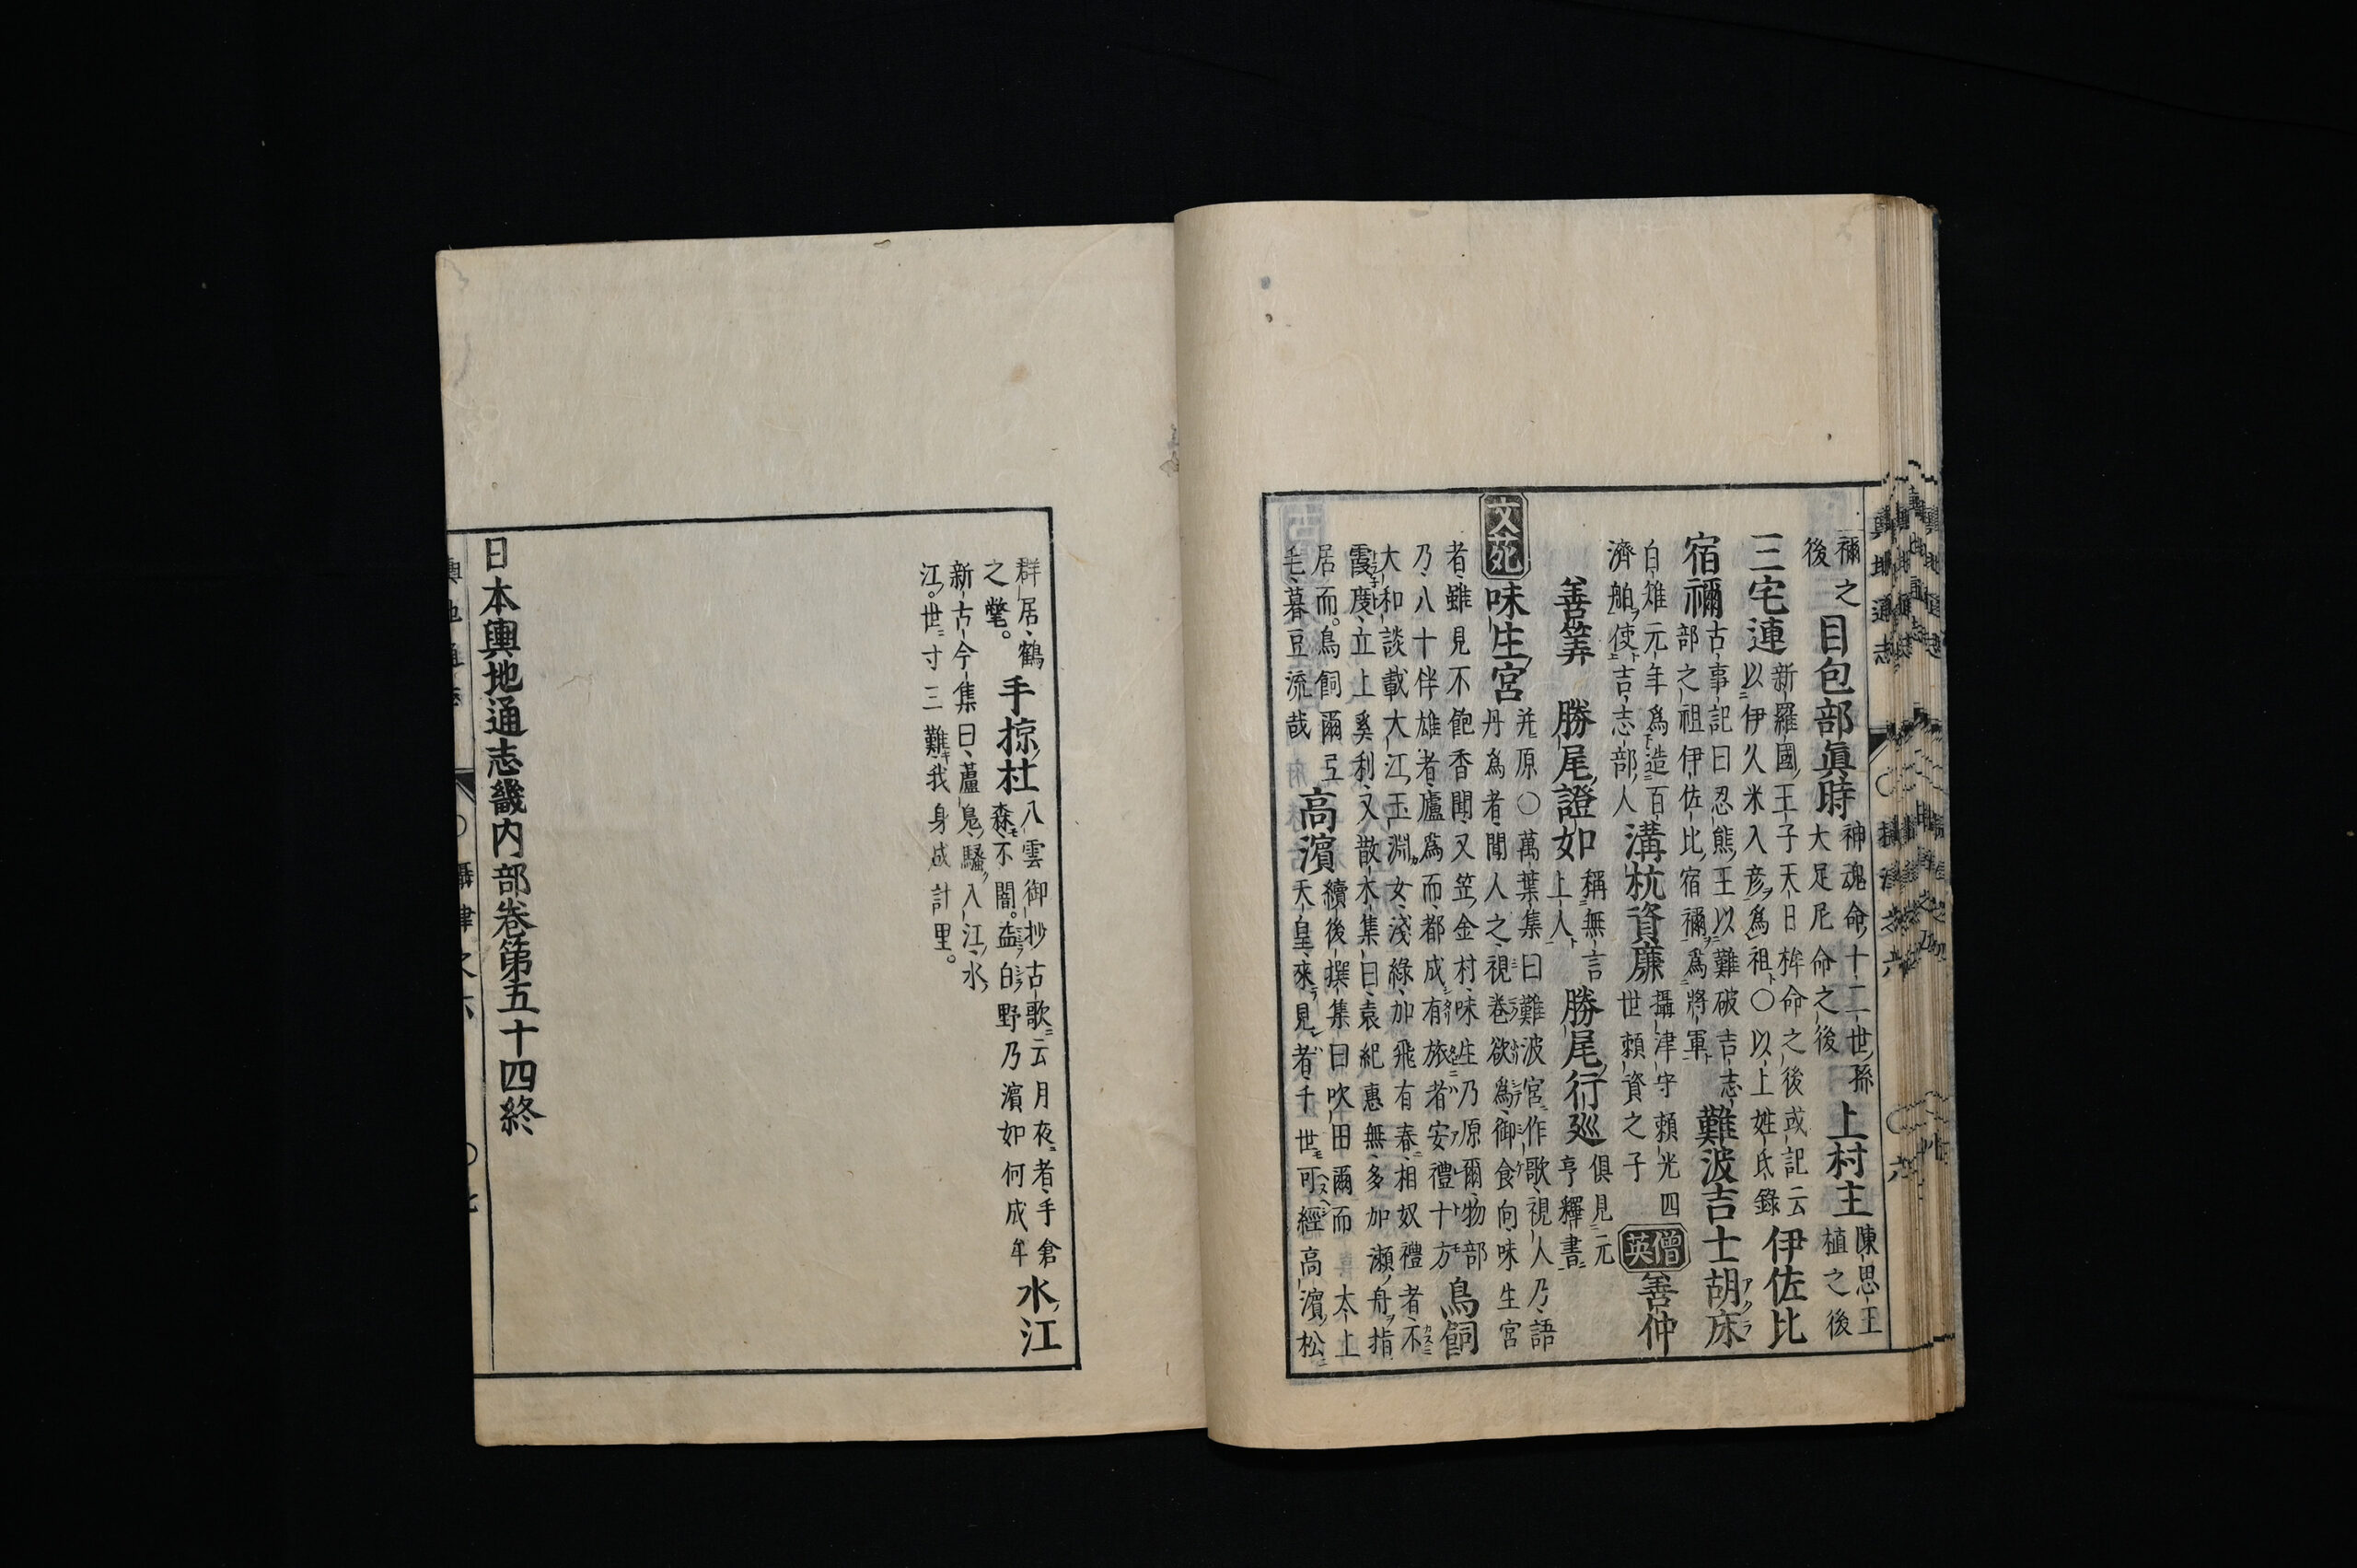 禰之
後
目包部眞時
神魂命十二世孫
大足尼命之後
上村主
陳思王
植之後
三宅連
新羅國王子天日桙命之後或記云
以伊久米入彦爲祖○以上姓氏錄
伊佐比
宿禰
古事記曰忍熊王以難破吉志
部之祖伊佐比宿禰爲將軍
難波吉士胡床
白雉元年爲造百
濟舶使吉志部人
溝杭資廉
攝津守賴光四
世賴資之子
僧英
善仲
善筭
勝尾證如
稱無言
上人
勝尾行巡
俱見元
亨釋書
文苑
味生宮
并原○萬葉集曰難波宮作歌視人乃語
丹爲者聞人之視卷欲爲御食向味生宮
者雖見不飽香聞又笠金村味生乃原爾物部
乃八十伴雄者廬爲而都成有旅者安禮十方
鳥飼
大和談載大江玉淵女淺綠加飛有春相奴禮者不
霞度立上奚利又散木集曰袁紀惠無多加瀬舟指
居而。鳥飼爾弖
毛暮豆流哉
高濱
續後撰集曰吹田爾而太上
天皇來見者千世可經高濱松
群居鶴
之氅。
手掠杜
八雲御抄古歌云月夜者手倉
森不闇。白野乃濱如何成牟
水江
新古今集曰蘆鳧騷入江水
江。世寸三難我身成計里。
日本輿地通志畿内部卷第五十四終